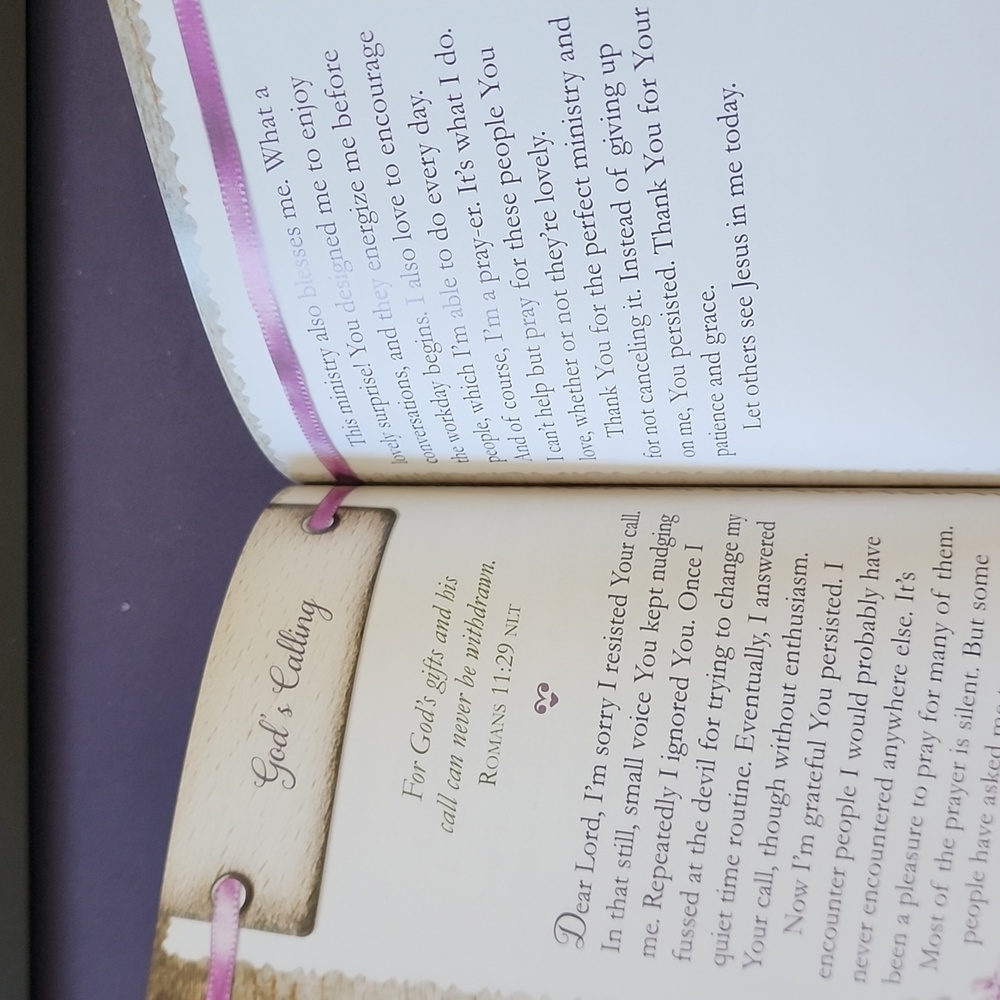 God's Calling
For God's gifts and his
call can never be withdrawn.
ROMANS 11:29 NLT
Dear Lord, I'm sorry I resisted Your call.
In that still, small voice You kept nudging
me. Repeatedly I ignored You. Once I
fussed at the devil for trying to change my
quiet time routine. Eventually, I answered
Your call, though without enthusiasm.
Now I'm grateful You persisted. I
encounter people I would probably have
never encountered anywhere else. It's
been a pleasure to pray for many of them.
Most of the prayer is silent. But some
people have asked
This ministry also blesses me. What a
lovely surprise! You designed me to enjoy
conversations, and they energize me before
the workday begins. I also love to encourage
people, which I'm able to do every day.
And of course, I'm a pray-er. It's what I do.
I can't help but pray for these people You
love, whether or not they're lovely.
Thank You for the perfect ministry and
for not canceling it. Instead of giving up
on me, You persisted. Thank You for Your
patience and grace.
Let others see Jesus in me today.